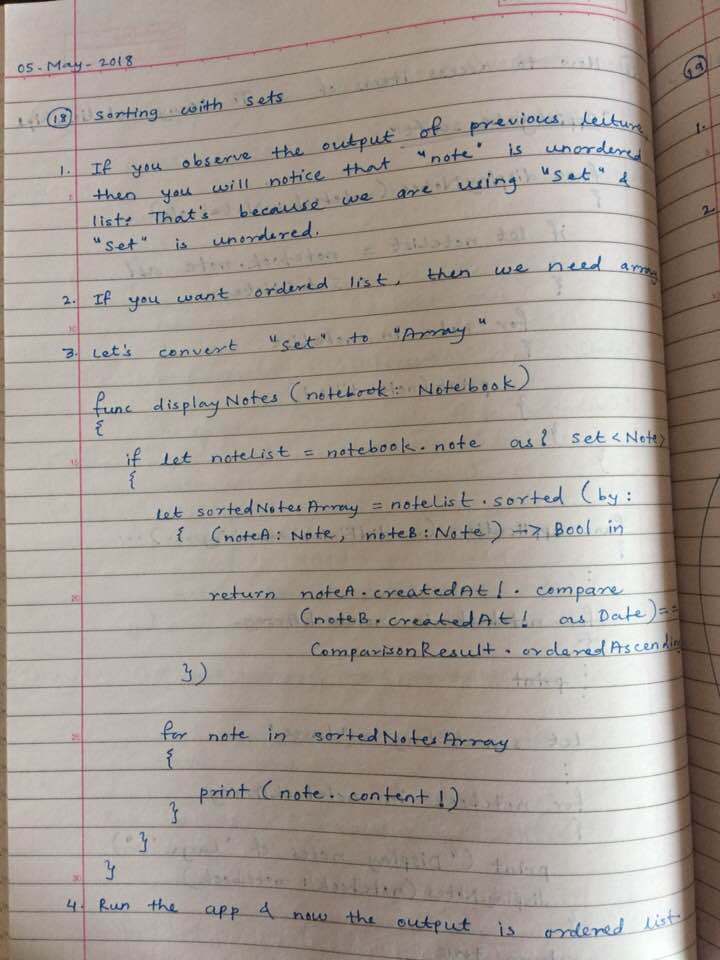 05-May-2018
18 Sorting with sets
1. If you observe the output of previous lecture,
then you will notice that "note" is unordered
list. That's because we are using "Set" &
"Set" is unordered.
2. If you want ordered list, then we need array
3. Let's convert "Set" to "Array"
func displayNotes (notebook: Notebook)
{
if let notelist = notebook.note as? set<Note>
{
let sortedNotesArray = notelist.sorted (by:
{ (noteA: Note, noteB: Note) -> Bool in
return noteA.createdAt!.compare
(noteB.createdAt! as Date) ==
ComparisonResult.orderedAscending
})
for note in sortedNotesArray
{
print (note.content!)
}
}
}
4. Run the app & now the output is ordered list
19
1.
2